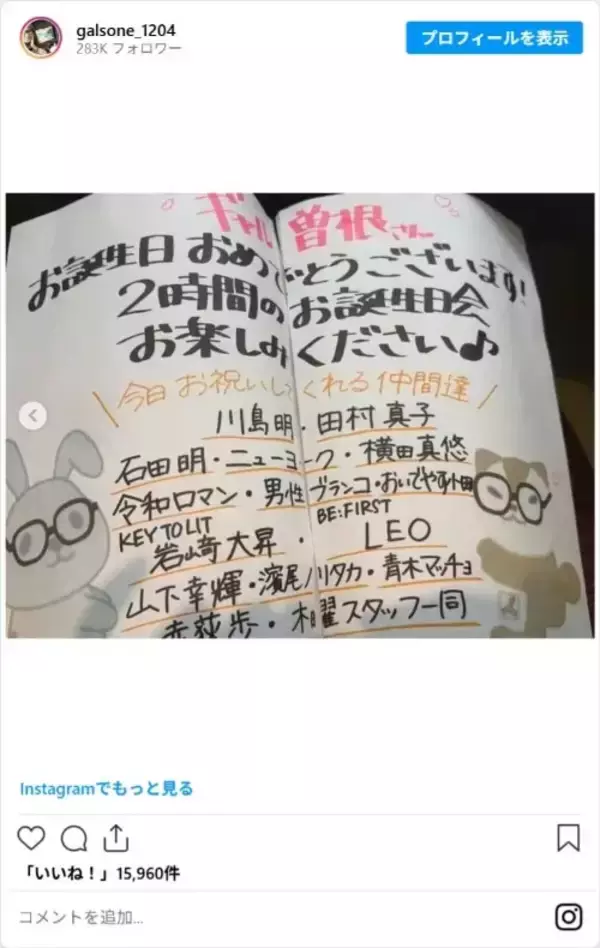 galsone_1204
283K フォロワー
プロフィールを表示
ギャル曽根さん
お誕生日おめでとうございます!
2時間のお誕生日会
お楽しみください♪
\今日お祝いしてくれる仲間達/
川島明・田村真子
石田明・ニューヨーク・横田真悠
令和ロマン・男性ブランコ・おいでやす小田
KEY TO LIT BE:FIRST
岩﨑大昇・LEO
山下幸輝・濱尾ノリタカ・青木マッチョ
赤荻歩・木曜スタッフ一同
Instagramでもっと見る
「いいね!」15,960件
コメントを追加...